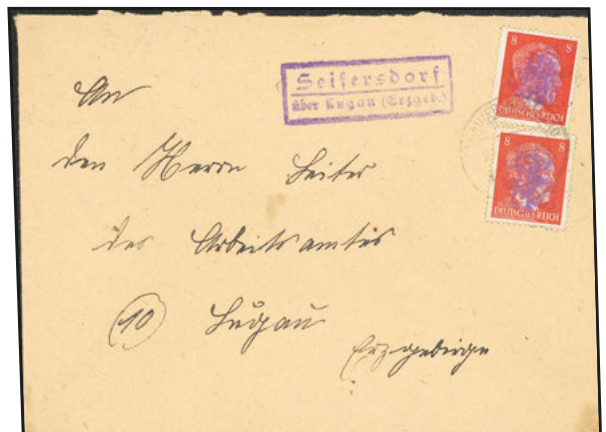 Seifersdorf
über Lugau (Erzgeb.)
8 8
DEUTSCHES REICH
8 8
DEUTSCHES REICH
An
den Herrn Leiter
des Arbeitsamtes
(10) Lugau
Erzgebirge